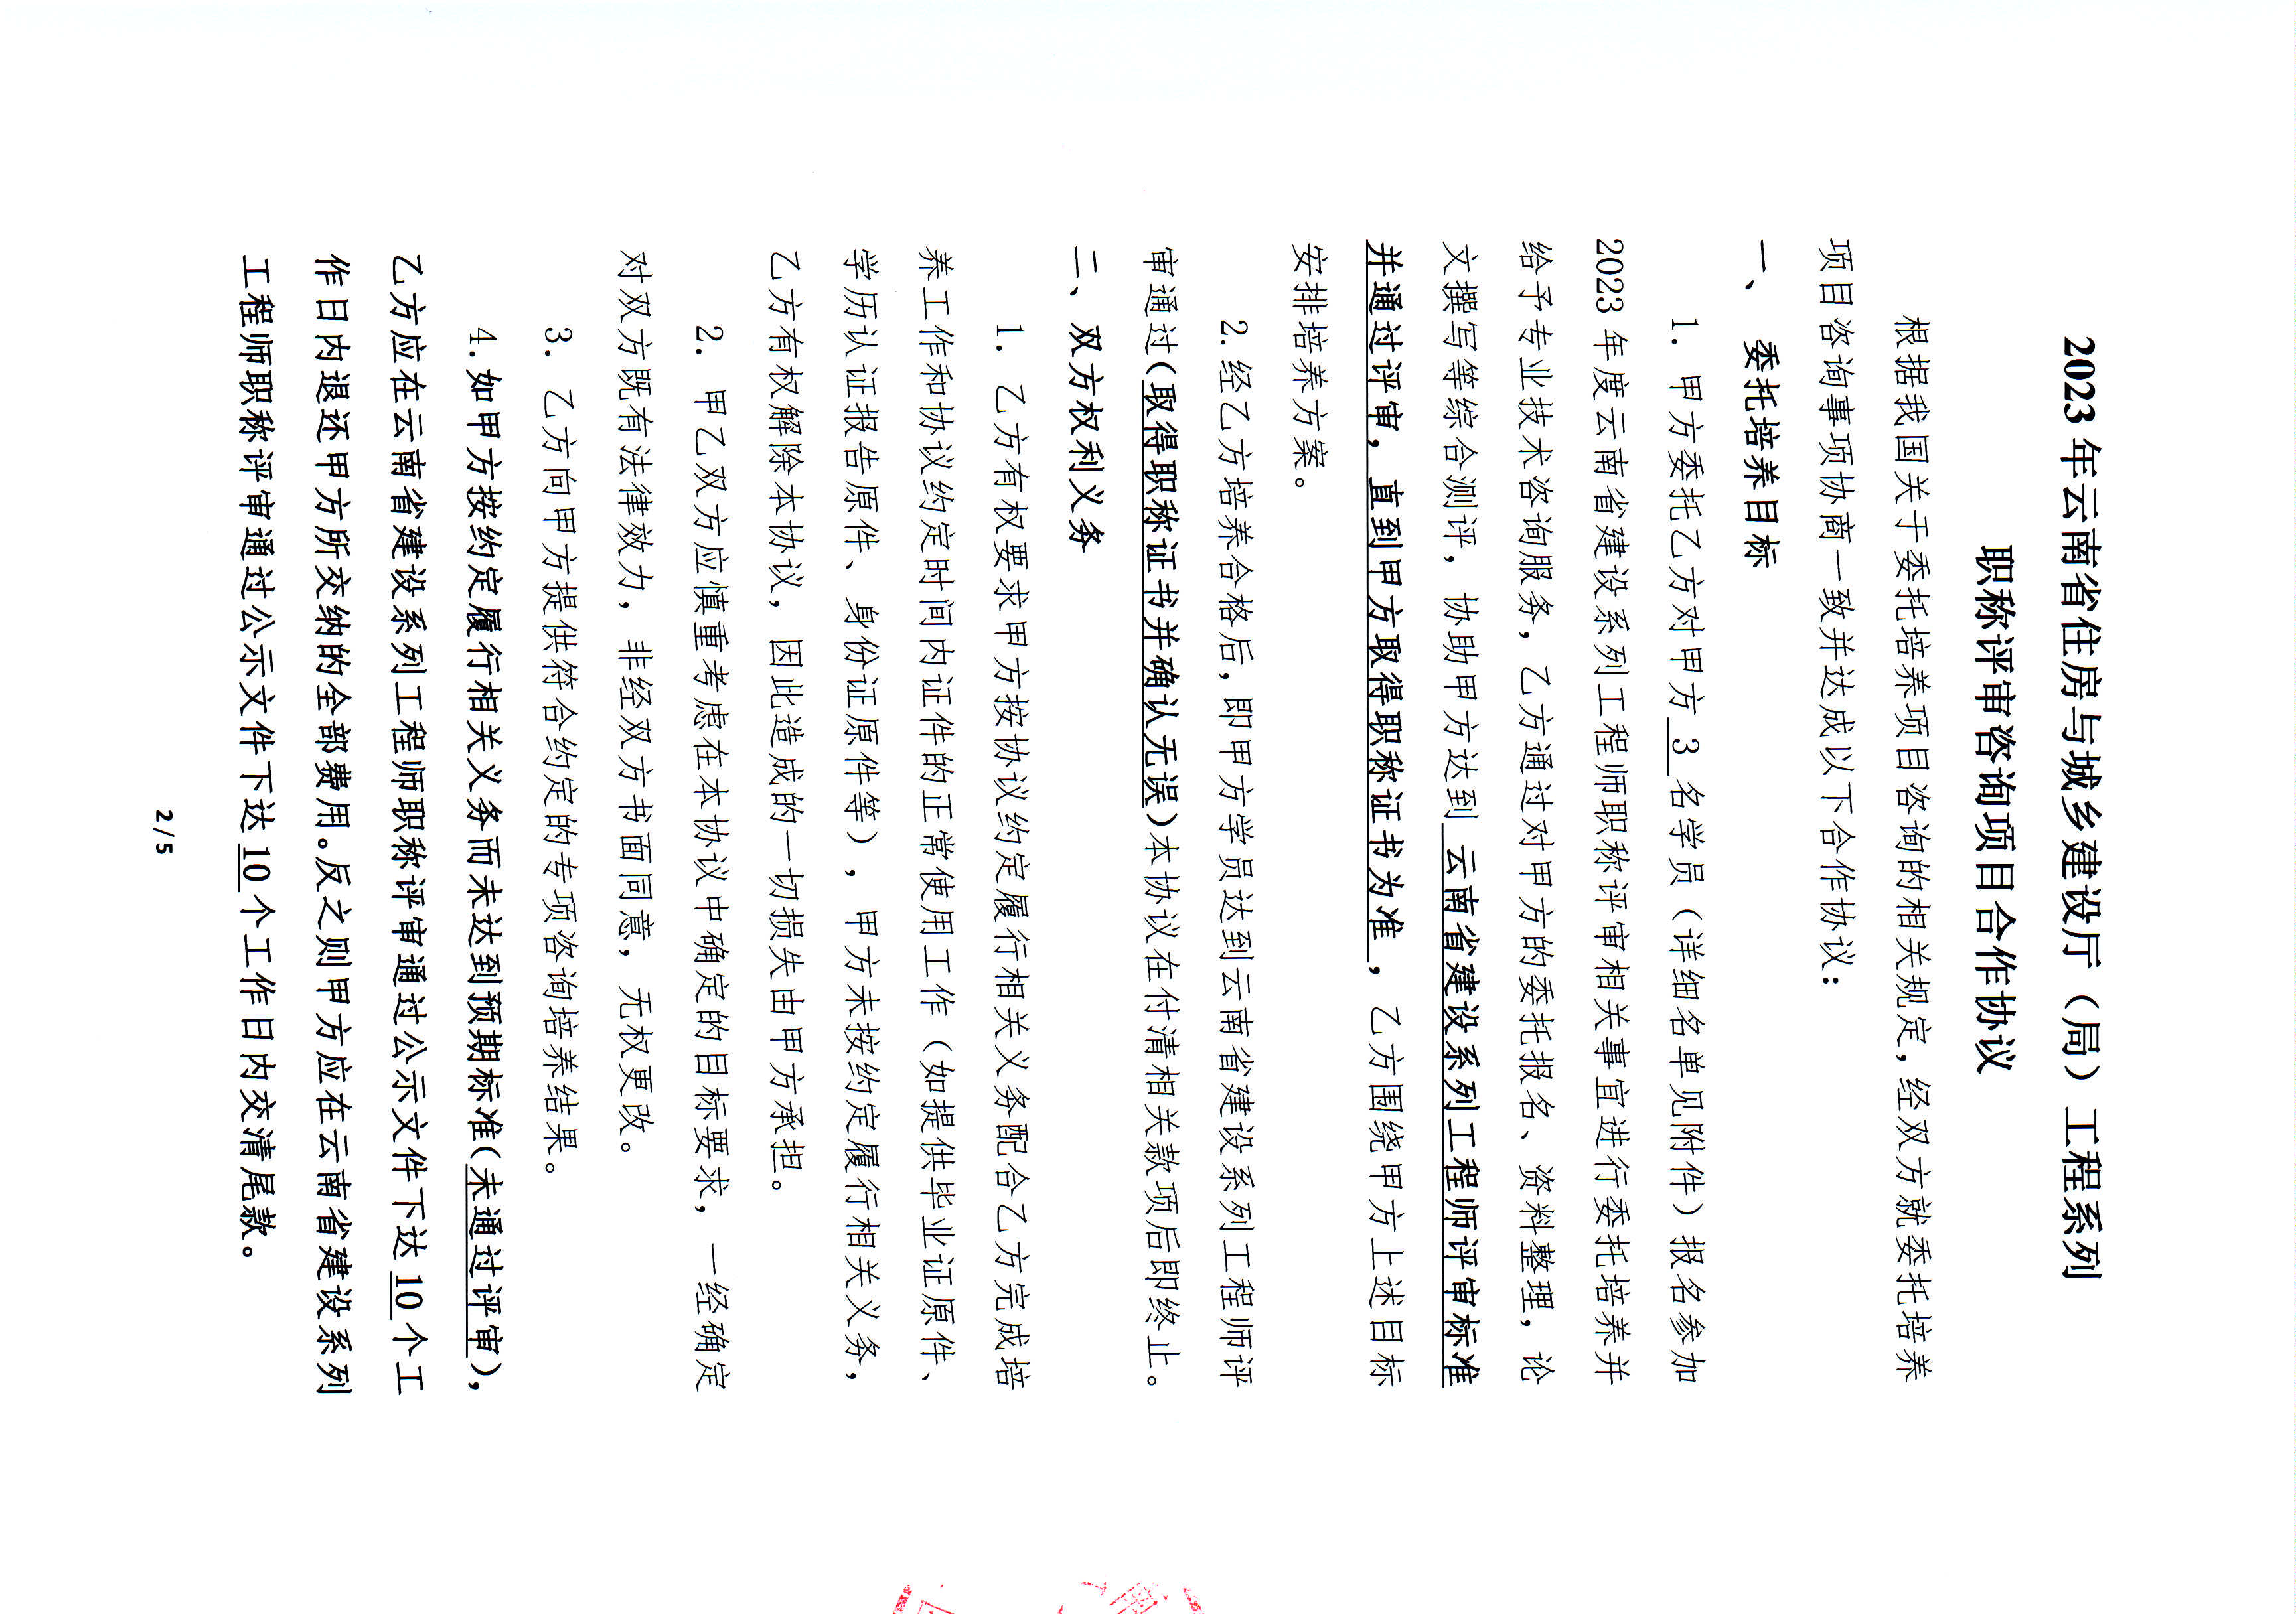 2023 年云南省住房与城乡建设厅（局）工程系列
职称评审咨询项目合作协议
根据我国关于委托培养项目咨询的相关规定，经双方就委托培养
项目咨询事项协商一致并达成以下合作协议：
一、 委托培养目标
1. 甲方委托乙方对甲方 3 名学员（详细名单见附件）报名参加
2023 年度云南省建设系列工程师职称评审相关事宜进行委托培养并
给予专业技术咨询服务，乙方通过对甲方的委托报名、资料整理，论
文撰写等综合测评，协助甲方达到 云南省建设系列工程师评审标准
并通过评审，直到甲方取得职称证书为准 ，乙方围绕甲方上述目标
安排培养方案。
2. 经乙方培养合格后，即甲方学员达到云南省建设系列工程师评
审通过(取得职称证书并确认无误)本协议在付清相关款项后即终止。
二、 双方权利义务
1. 乙方有权要求甲方按协议约定履行相关义务配合乙方完成培
养工作和协议约定时间内证件的正常使用工作（如提供毕业证原件、
学历认证报告原件、身份证原件等），甲方未按约定履行相关义务，
乙方有权解除本协议，因此造成的一切损失由甲方承担。
2. 甲乙双方应慎重考虑在本协议中确定的目标要求，一经确定
对双方既有法律效力，非经双方书面同意，无权更改。
3. 乙方向甲方提供符合约定的专项咨询培养结果。
4. 如甲方按约定履行相关义务而未达到预期标准(未通过评审)，
乙方应在云南省建设系列工程师职称评审通过公示文件下达 10 个工
作日内退还甲方所交纳的全部费用。反之则甲方应在云南省建设系列
工程师职称评审通过公示文件下达 10 个工作日内交清尾款。
2 / 5